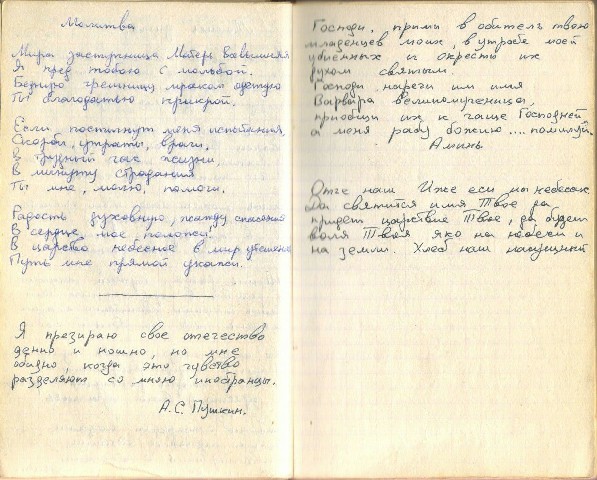 Молитва
Мира заступница Матерь Всевышняя
Я пред тобою с мольбой.
Бедную грешницу мраком одетую
Ты благодатью прикрой.
Если постигнут меня испытания,
Скорби, утраты, враги,
В трудный час жизни,
В минуту страдания
Ты мне, молю, помоги.
Радость духовную, жажду спасения
В сердце мое положи.
В царство небесное в мир утешения
Путь мне прямой укажи.
Я презираю свое отечество
денно и нощно, но мне
обидно, когда это чувство
разделяют со мною иностранцы.
А.С. Пушкин.
Господи, прими в обитель твою
младенцев моих, в утробе моей
убиенных и окрести их
духом святым.
Господи нареги им имя
Варвара великомученица,
приобщи их к чаще Господней
а меня рабу божию .... помилуй.
Аминь
Отче наш Иже еси на небесах
Да святится имя Твое да
придет царствие Твое, да будет
воля Твоя яко на небеси и
на земли. Хлеб наш насущный